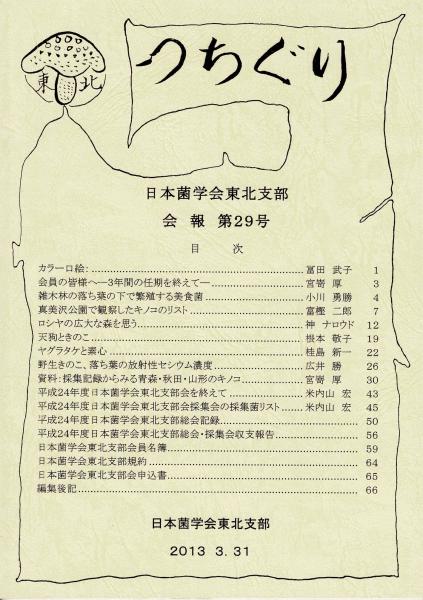 東北
つちぐり
日本菌学会東北支部
会報 第29号
目 次
カラー口絵:……………………………冨田 武子 1
会員の皆様へ―3年間の任期を終えて―……………………………宮嵜 厚 3
雑木林の落ち葉の下で繁殖する美食菌……………………………小川 勇勝 4
真美沢公園で観察したキノコのリスト……………………………富樫 二郎 7
ロシヤの広大な森を思う……………………………神 ナロウド 12
天狗ときのこ……………………………根本 敬子 19
ヤグラタケと素心……………………………桂島 新一 22
野生きのこ、落ち葉の放射性セシウム濃度……………………………広井 勝 26
資料:採集記録からみる青森・秋田・山形のキノコ……………………………宮嵜 厚 30
平成24年度日本菌学会東北支部会を終えて……………………………米内山 宏 43
平成24年度日本菌学会東北支部会採集会の採集菌リスト……………………………米内山 宏 45
平成24年度日本菌学会東北支部総会記録……………………………50
平成24年度日本菌学会東北支部総会・採集会収支報告……………………………56
日本菌学会東北支部会員名簿……………………………59
日本菌学会東北支部規約……………………………64
日本菌学会東北支部会申込書……………………………65
編集後記……………………………66
日本菌学会東北支部
2013 3.31